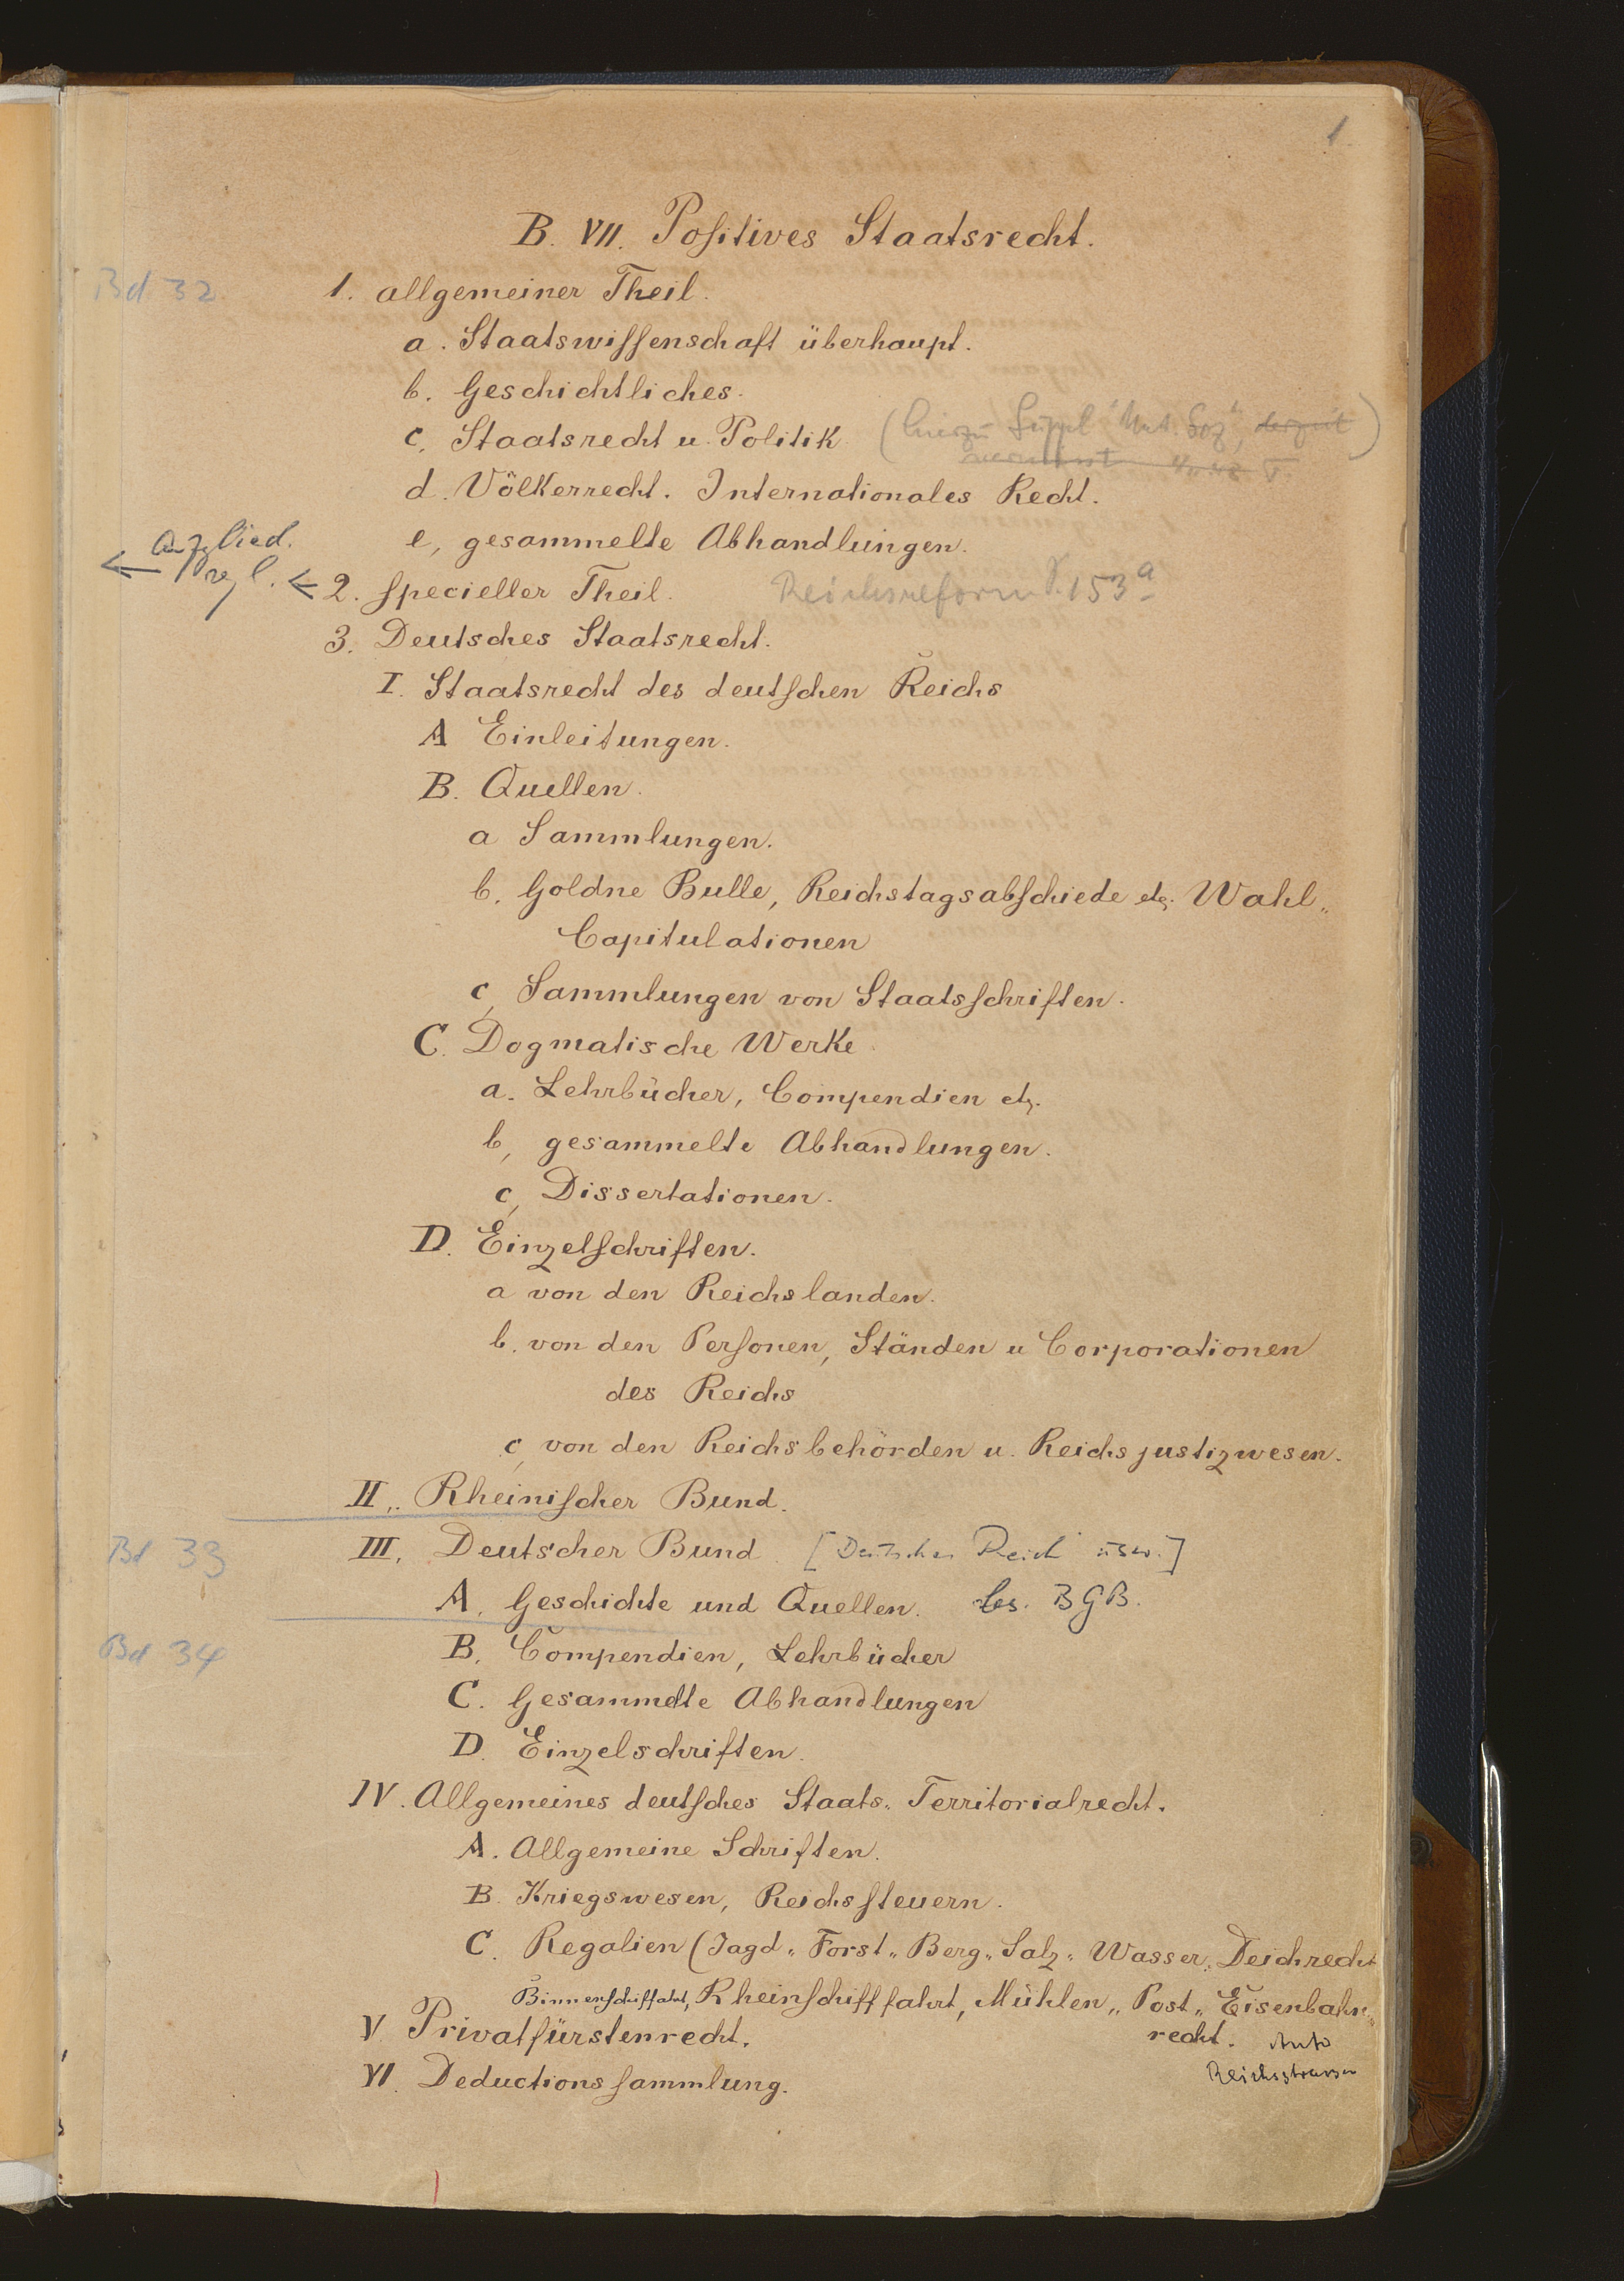 1
B. VII. Positives Staatsrecht.
Bd 32
1. allgemeiner Theil.
a. Staatswissenschaft überhaupt.
b. Geschichtliches.
c, Staatsrecht u. Politik (hierzu Suppl "Nat. Soz",
d. Völkerrecht. Internationales Recht.
e, gesammelte Abhandlungen.
2. specieller Theil. Reichsreform S. 153a
3. Deutsches Staatsrecht.
I. Staatsrecht des deutschen Reichs
A Einleitungen.
B. Quellen.
a Sammlungen.
b. Goldne Bulle, Reichstagsabschiede etc. Wahl„
Capitulationen
c, Sammlungen von Staatsschriften.
C. Dogmatische Werke
a. Lehrbücher, Compendien etc.
b, gesammelte Abhandlungen.
c, Dissertationen.
D. Einzelschriften.
a von den Reichslanden.
b. von den Personen, Ständen u Corporationen
des Reichs
c, von den Reichsbehörden u. Reichsjustizwesen.
II. Rheinischer Bund.
Bd 33
III. Deutscher Bund. [Deutsches Reich usw.]
A. Geschichte und Quellen. bes. BGB.
Bd 34
B. Compendien, Lehrbücher
C. Gesammelte Abhandlungen
D. Einzelschriften.
IV. Allgemeines deutsches Staats„ Territorialrecht.
A. Allgemeine Schriften.
B. Kriegswesen, Reichssteuern.
C. Regalien (Jagd„ Forst„ Berg„ Salz„ Wasser„ Deichrecht
Binnenschiffahrt, Rheinschifffahrt, Mühlen„ Post„ Eisenbahn„
V. Privatfürstenrecht. recht. Auto
Reichsstrassen
VI. Deductionssammlung.